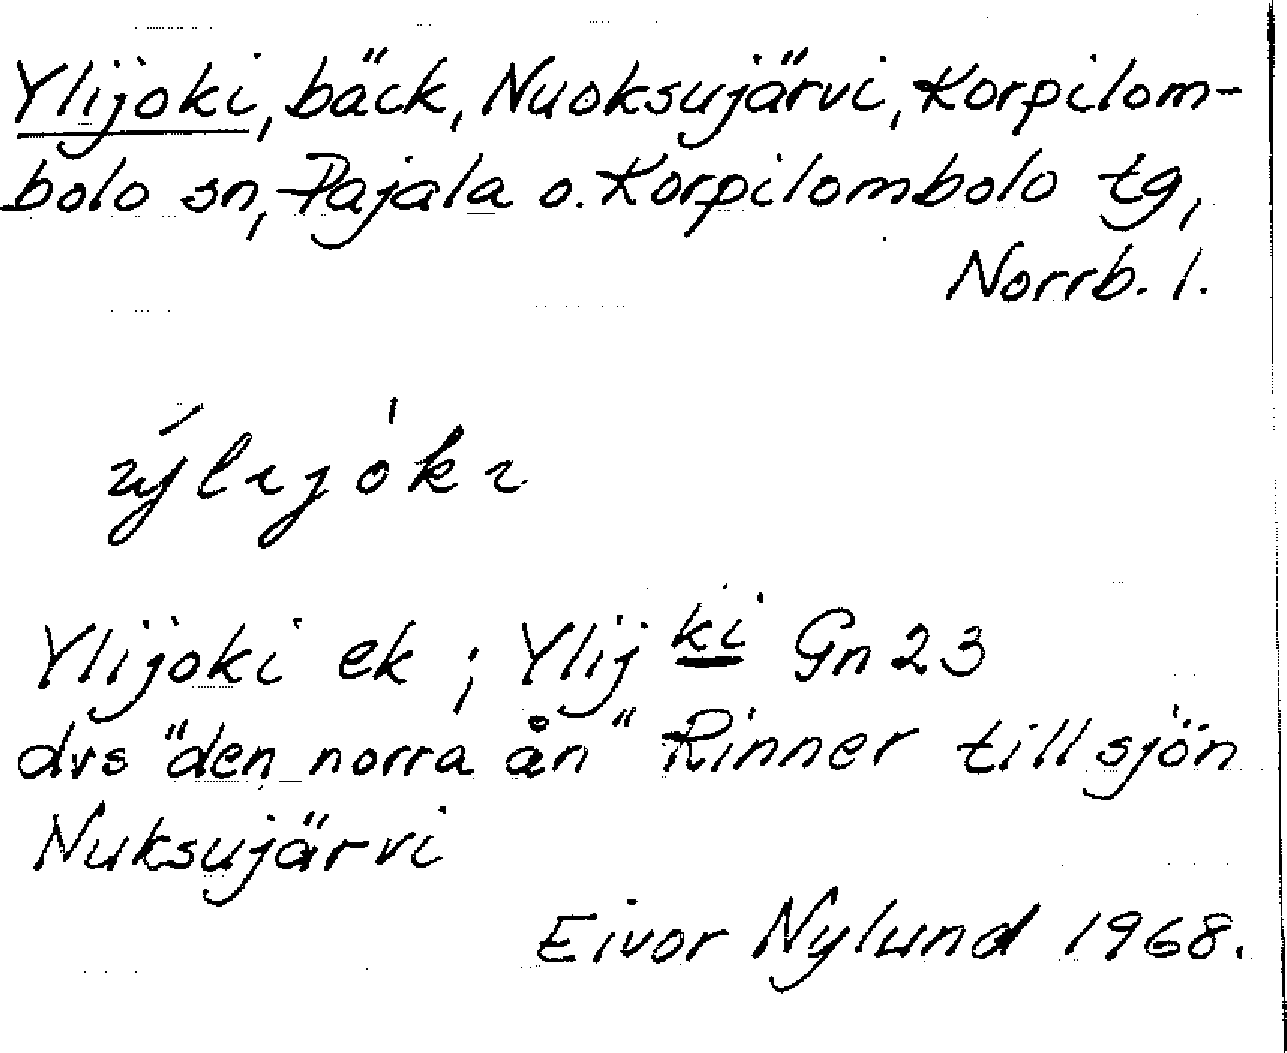 Ylijoki, bäck, Nuoksujärvi, Korpilom-
bolo sn, Pajala o. Korpilombolo tg,
Norrb. l.
ýlɩjòkɩ
Ylijoki ek ; Ylij ki Gn 23
dvs "den norra ån" Rinner till sjön
Nuksujärvi
Eivor Nylund 1968.